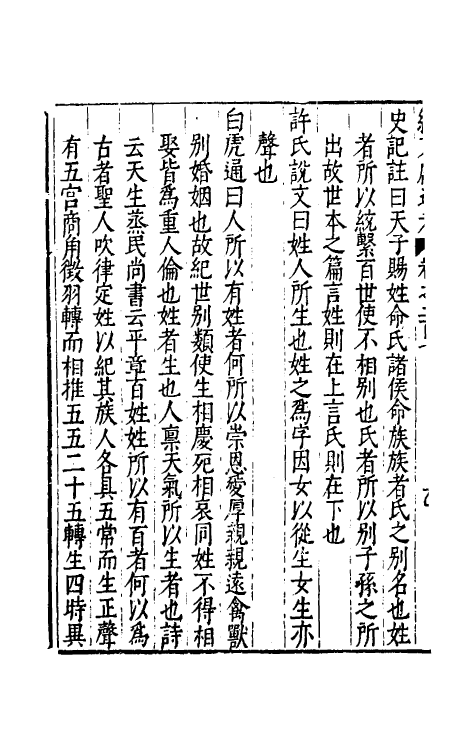 史記註曰天子賜姓命氏諸侯命族族者氏之别名也姓
者所以統繫百世使不相别也氏者所以别子孫之所
出故世本之篇言姓則在上言氏則在下也
許氏說文曰姓人所生也姓之爲字因女以從生女生亦
聲也
白虎通曰人所以有姓者何所以崇恩愛厚親親遠禽獸
别婚姻也故紀世别類使生相慶死相哀同姓不得相
娶皆爲重人倫也姓者生也人禀天氣所以生者也詩
云天生烝民尚書云平章百姓姓所以有百者何以爲
古者聖人吹律定姓以紀其族人各具五常而生正聲
有五宫商角徵羽轉而相推五五二十五轉生四時異